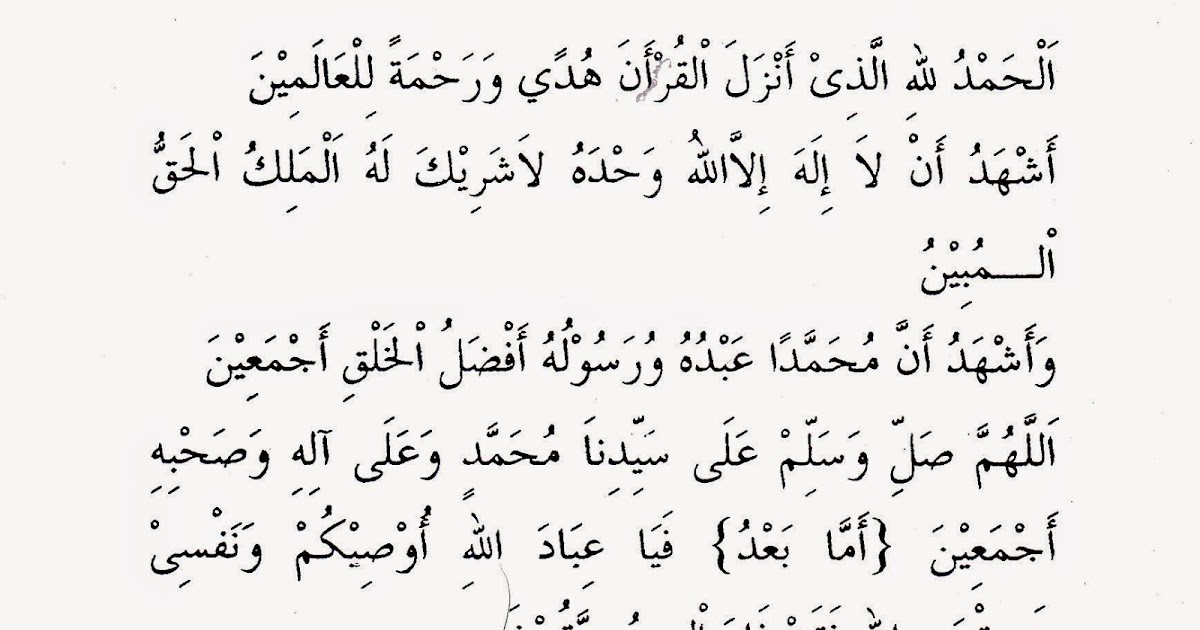 اَلْحَمْدُ لِلهِ الَّذِىْ أَنْزَلَ الْقُرْأَنَ هُدًي وَرَحْمَةً لِلْعَالَمِيْنَ
أَشْهَدُ أَنْ لاَ إِلَهَ إِلاَّاللهُ وَحْدَهُ لاَشَرِيْكَ لَهُ اَلْمَلِكُ الْحَقُّ
الْـــمُبِيْنُ
وَأَشْهَدُ أَنَّ مُحَمَّدًا عَبْدُهُ وُرَسُوْلُهُ أَفْضَلُ الْخَلْقِ أَجْمَعِيْنَ
اَللَّهُمَّ صَلِّ وَسَلِّمْ عَلَى سَيِّدِنِاَ مُحَمَّدٍ وَعَلَى آلِهِ وَصَحْبِهِ
أَجْمَعِيْنَ {أَمَّا بَعْدُ} فَيَا عِبَادَ اللهِ أُوْصِيْكُمْ وَنَفْسِىْ